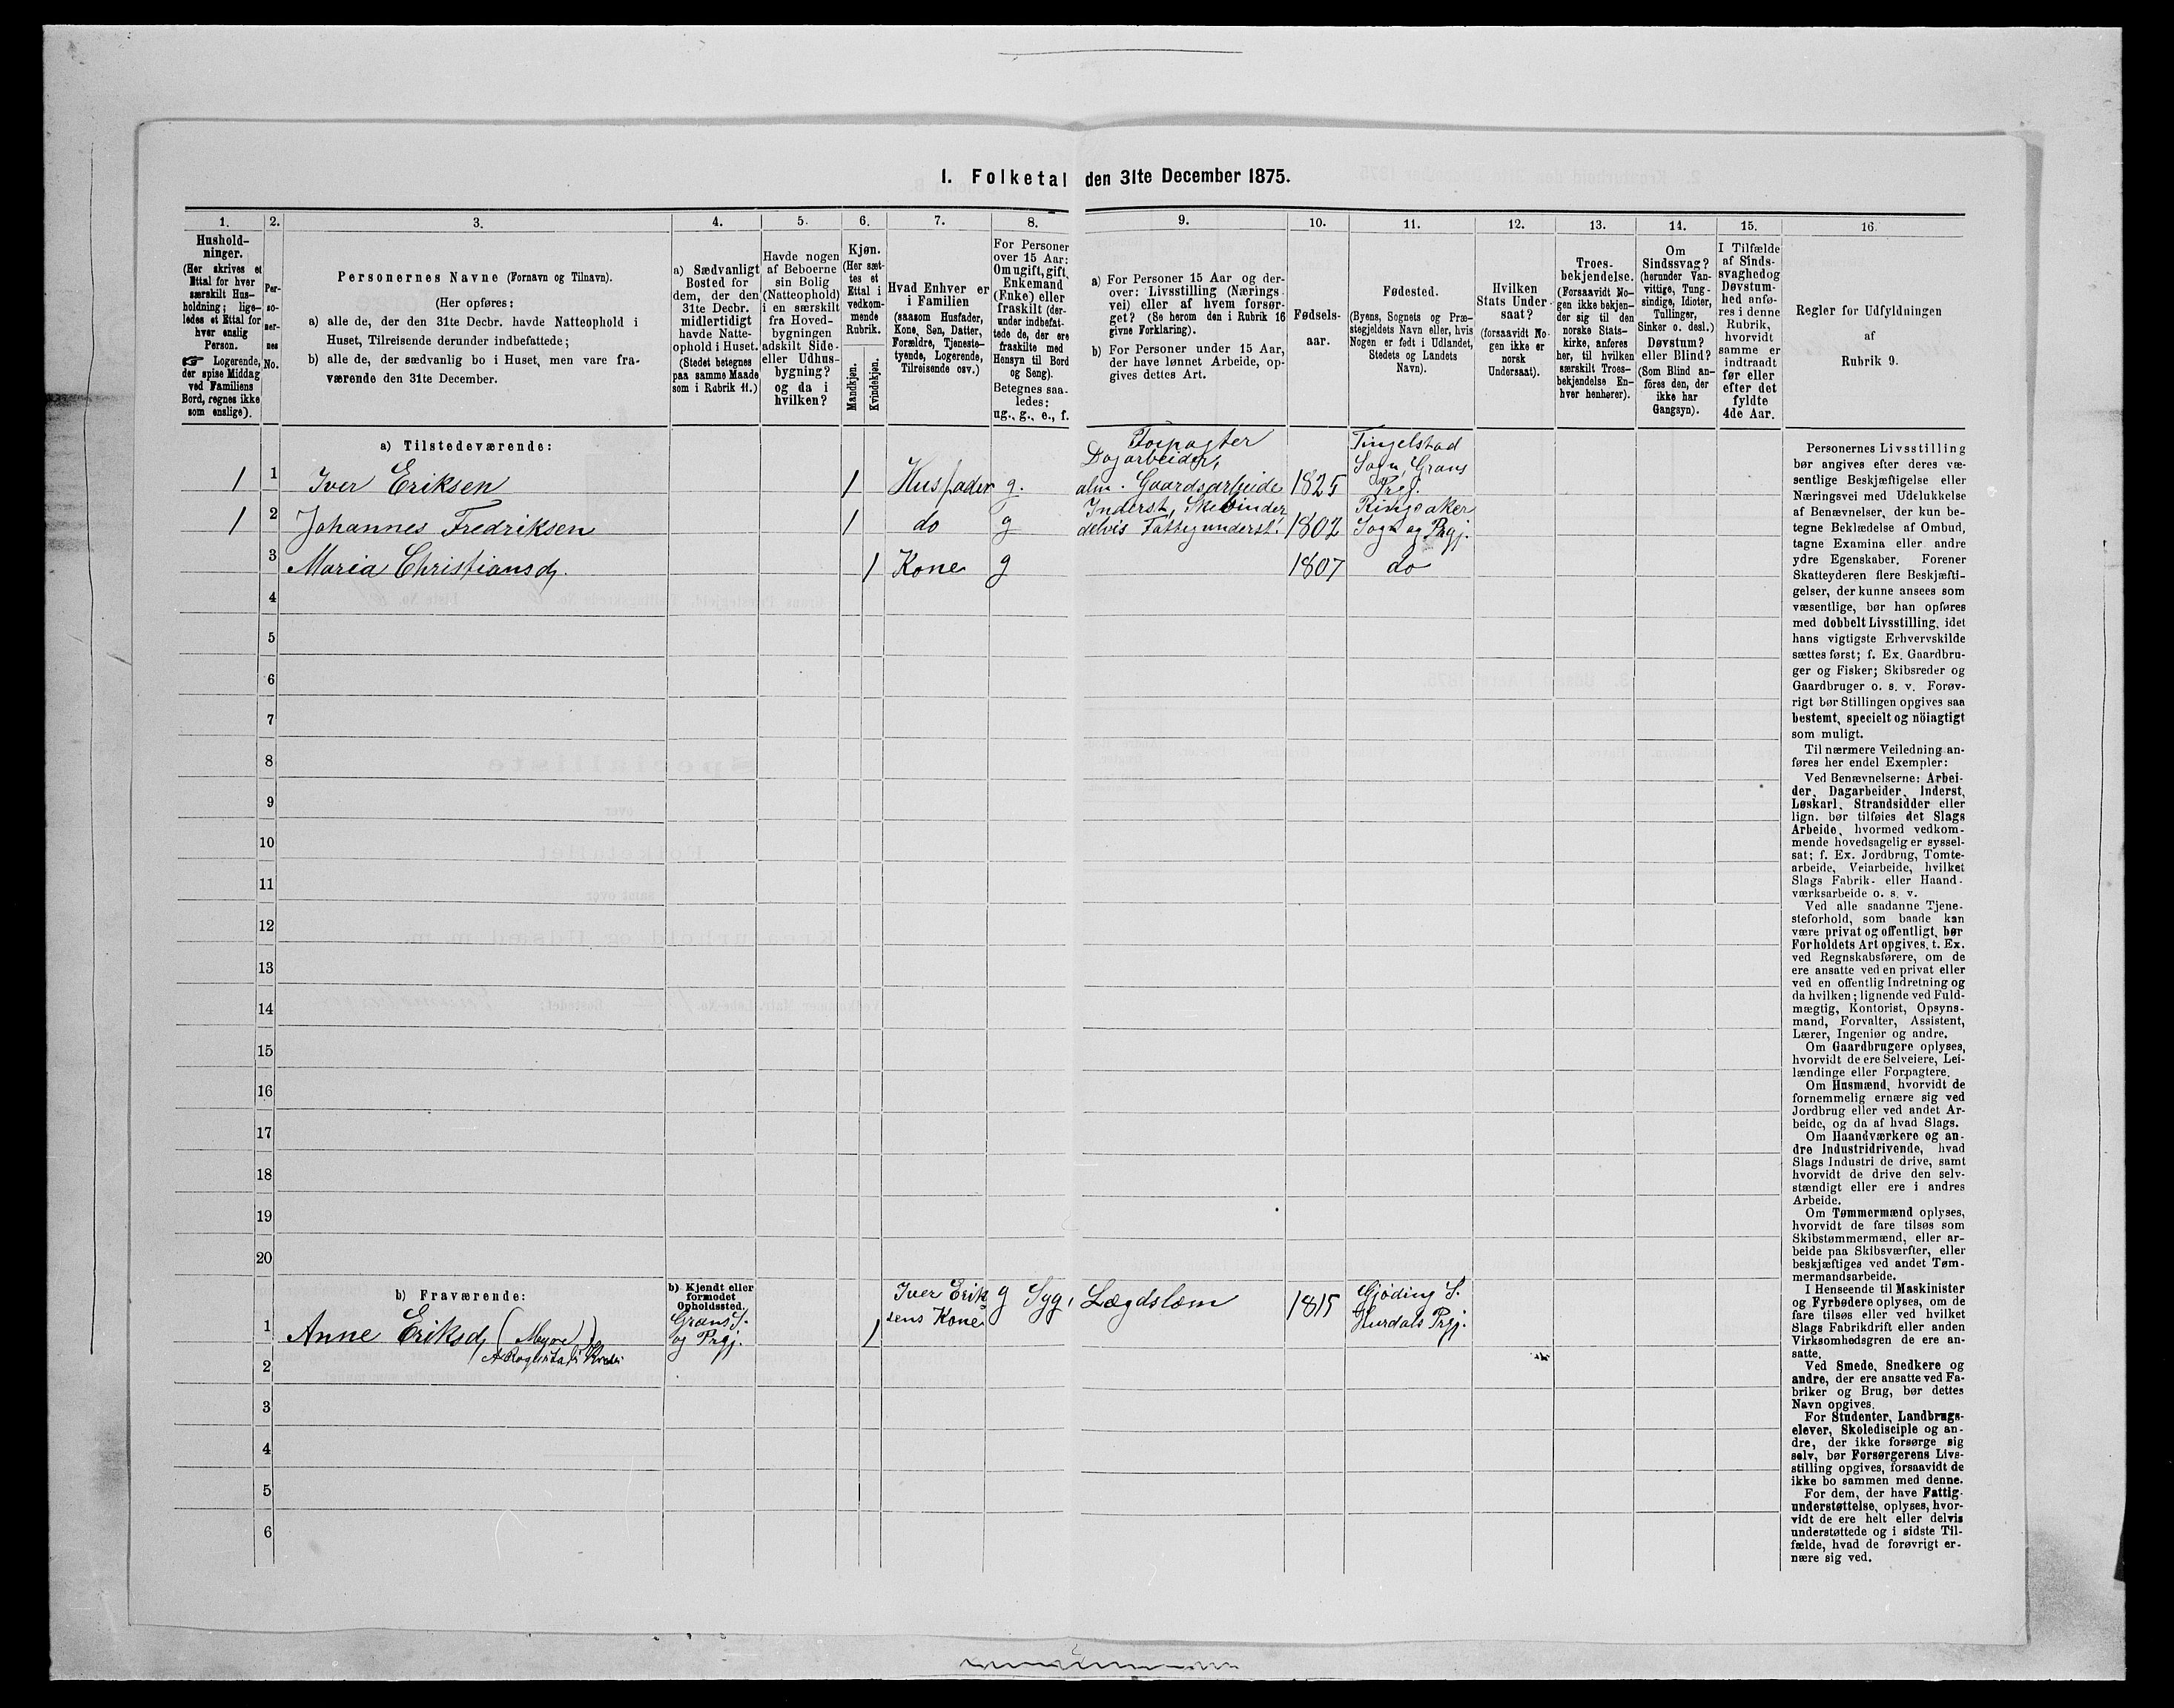 1. Folketal den 31te December 1875.
1. 2. 3. 4. 5. 6. 7. 8. 9. 10. 11. 12. 13. 14. 15. 16.
Hushold-
ninger.
(Her skrives et
Ettal for hver
særskilt Hus-
holdning; lige-
ledes et Ettal for
hver enslig
Person.
☞ Logerende,
der spise Middag
ved Familiens
Bord, regnes ikke
som enslige).
Per-
so-
ner-
nes
No.
Personernes Navne (Fornavn og Tilnavn).
(Her opføres:
a) alle de, der den 31te Decbr. havde Natteophold i
Huset, Tilreisende derunder indbefattede;
b) alle de, der sædvanlig bo i Huset, men vare fra-
værende den 31te December.
a) Sædvanligt
Bosted for
dem, der den
31te Decbr.
midlertidigt
havde Natte-
ophold i Huset.
(Stedet betegnes
paa samme Maade
som i Rubrik 11.)
Havde nogen
af Beboerne
sin Bolig
(Natteophold)
i en særskilt
fra Hoved-
bygningen
adskilt Side-
eller Udhus-
bygning?
og da i
hvilken?
Kjøn.
(Her sæt-
tes et
Ettal i
vedkom-
mende
Rubrik.
Mandkjøn.
Kvindekjøn.
Hvad Enhver er
i Familien
(saasom Husfader,
Kone, Søn, Datter,
Forældre, Tjeneste-
tyende, Logerende,
Tilreisende osv.)
For Personer
over 15 Aar:
Om ugift, gift,
Enkemand
(Enke) eller
fraskilt (der-
under indbefat-
tede de, der ere
fraskilte med
Hensyn til Bord
og Seng).
Betegnes saa-
ledes:
ug., g., e., f.
a) For Personer 15 Aar og der-
over: Livsstilling (Nærings-
vei) eller af hvem forsør-
get? (Se herom den i Rubrik 16
givne Forklaring).
b) For Personer under 15 Aar,
der have lønnet Arbeide, op-
gives dettes Art.
Fødsels-
aar.
Fødested.
(Byens, Sognets og Præ-
stegjeldets Navn eller, hvis
Nogen er født i Udlandet,
Stedets og Landets
Navn).
Hvilken
Stats Under-
saat?
(forsaavidt No-
gen ikke er
norsk
Undersaat).
Troes-
bekjendelse.
(Forsaavidt No-
gen ikke bekjen-
der sig til den
norske Stats-
kirke, anføres
her, til hvilken
særskilt Troes-
bekjendelse En-
hver henhører).
Om
Sindssvag?
(herunder Van-
vittige, Tung-
sindige, Idioter,
Tullinger,
Sinker o. desl.)
Døvstum?
eller Blind?
(Som Blind an-
føres den, der
ikke har
Gangsyn).
I Tilfælde
af Sinds-
svaghed og
Døvstum-
hed anfø-
res i denne
Rubrik,
hvorvidt
samme er
indtraadt
før eller
efter det
fyldte
4de Aar.
Regler for Udfyldningen
af
Rubrik 9.
a) Tilstedeværende:
Forpagter Tingelstad
Dagarbeider, Sogn, Grans
1 1 Iver Eriksen 1 Husfader g. alm. Gaardsarbeide 1825 Prgj.
Inderst, Skebinder Ringsaker
1 2 Johannes Fredriksen 1 do g delvis Fattigunderst. 1802 Sogn og Prgj.
3 Maria Christiansd. 1 Kone g 1807 do
4
5
6
7
8
9
10
11
12
13
14
15
16
17
18
19
20
b) Fraværende:
b) Kjendt eller
formodet
Opholdssted.
Iver Erik g Syg, Lægdslem 1815 Gjøding S.
Grans S. sens Kone Hurdals Prgj.
1 Anne Eriksd. og Prgj. 1
2
3
4
5
6
Personernes Livsstilling
bør angives efter deres væ-
sentlige Beskjæftigelse eller
Næringsvei med Udelukkelse
af Benævnelser, der kun be-
tegne Beklædelse af Ombud,
tagne Examina eller andre
ydre Egenskaber. Forener
Skatteyderen flere Beskjæfti-
gelser, der kunne ansees som
væsentlige, bør han opføres
med dobbelt Livsstilling, idet
hans vigtigste Erhvervskilde
sættes først; f. Ex. Gaardbru-
ger og Fisker; Skibsreder og
Gaardbruger o. s. v. Forøv-
rigt bør Stillingen opgives saa
bestemt, specielt og nöiagtigt
som muligt.
Til nærmere Veiledning an-
føres her endel Exempler:
Ved Benævnelserne: Arbei-
der, Dagarbeider, Inderst,
Løskarl, Strandsidder eller
lign. bør tilføies det Slags
Arbeide, hvormed vedkom-
mende hovedsagelig er syssel-
sat; f. Ex. Jordbrug, Tomte-
arbeide, Veiarbeide, hvilket
Slags Fabrik- eller Haand-
værksarbeide o. s. v.
Ved alle saadanne Tjene-
steforhold, som baade kan
være privat og offentligt, bør
Forholdets Art opgives, t. Ex.
ved Regnskabsførere, om de
ere ansatte ved en privat eller
ved en offentlig Indretning og
da hvilken; lignende ved Fuld-
mægtig, Kontorist, Opsyns-
mand, Forvalter, Assistent,
Lærer, Ingeniør og andre.
Om Gaardbrugere oplyses,
hvorvidt de ere Selveiere, Lei-
lændinge eller Forpagtere.
Om Husmænd, hvorvidt de
fornemmelig ernære sig ved
Jordbrug eller ved andet Ar-
beide, og da af hvad Slags.
Om Haandværkere og an-
dre Industridrivende, hvad
Slags Industri de drive, samt
hvorvidt de drive den selv-
stændigt eller ere i andres
Arbeide.
Om Tømmermænd oplyses,
hvorvidt de fare tilsøs som
Skibstømmermænd, eller ar-
beide paa Skibsværfter, eller
beskjæftiges ved andet Tøm-
mermandsarbeide.
I Henseende til Maskinister
og Fyrbødere oplyses, om de
fare tilsøs eller ved hvilket
Slags Fabrikdrift eller anden
Virksomhedsgren de ere an-
satte.
Ved Smede, Snedkere og
andre, der ere ansatte ved Fa-
briker og Brug, bør dettes
Navn opgives.
For Studenter, Landbrugs-
elever, Skoledisciple og an-
dre, der ikke forsørge sig
selv, bør Forsørgerens Livs-
stilling opgives, forsaavidt de
ikke bo sammen med denne.
For dem, der have Fattig-
understøttelse, oplyses, hvor-
vidt de ere helt eller delvis
understøttede og i sidste Til-
fælde, hvad de forøvrigt er-
nære sig ved.